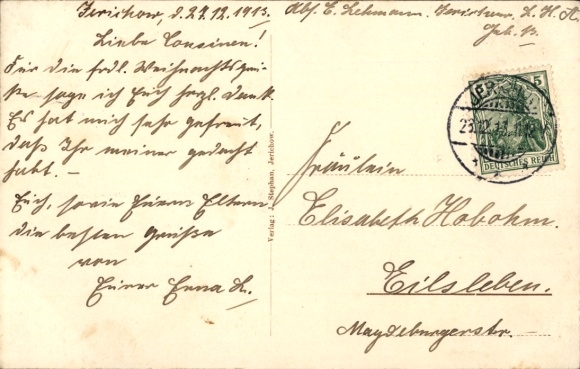 Jerichow, d. 27.12.1913.
Liebe Cousinen!
Für die frdl. Weihnachtsgrü-
ße sage ich Euch herzl. Dank.
Es hat mich sehr gefreut,
daß Ihr meiner gedacht
habt. –
Euch, sowie Euren Eltern
die besten Grüße
von
Eurer Erna L.
Verlag: J. Stephan, Jerichow.
Abs. E. Lehmann, Jerichow
5
DEUTSCHES REICH
Fräulein
Elisabeth Hobohm.
Eilsleben.
Magdeburgerstr.